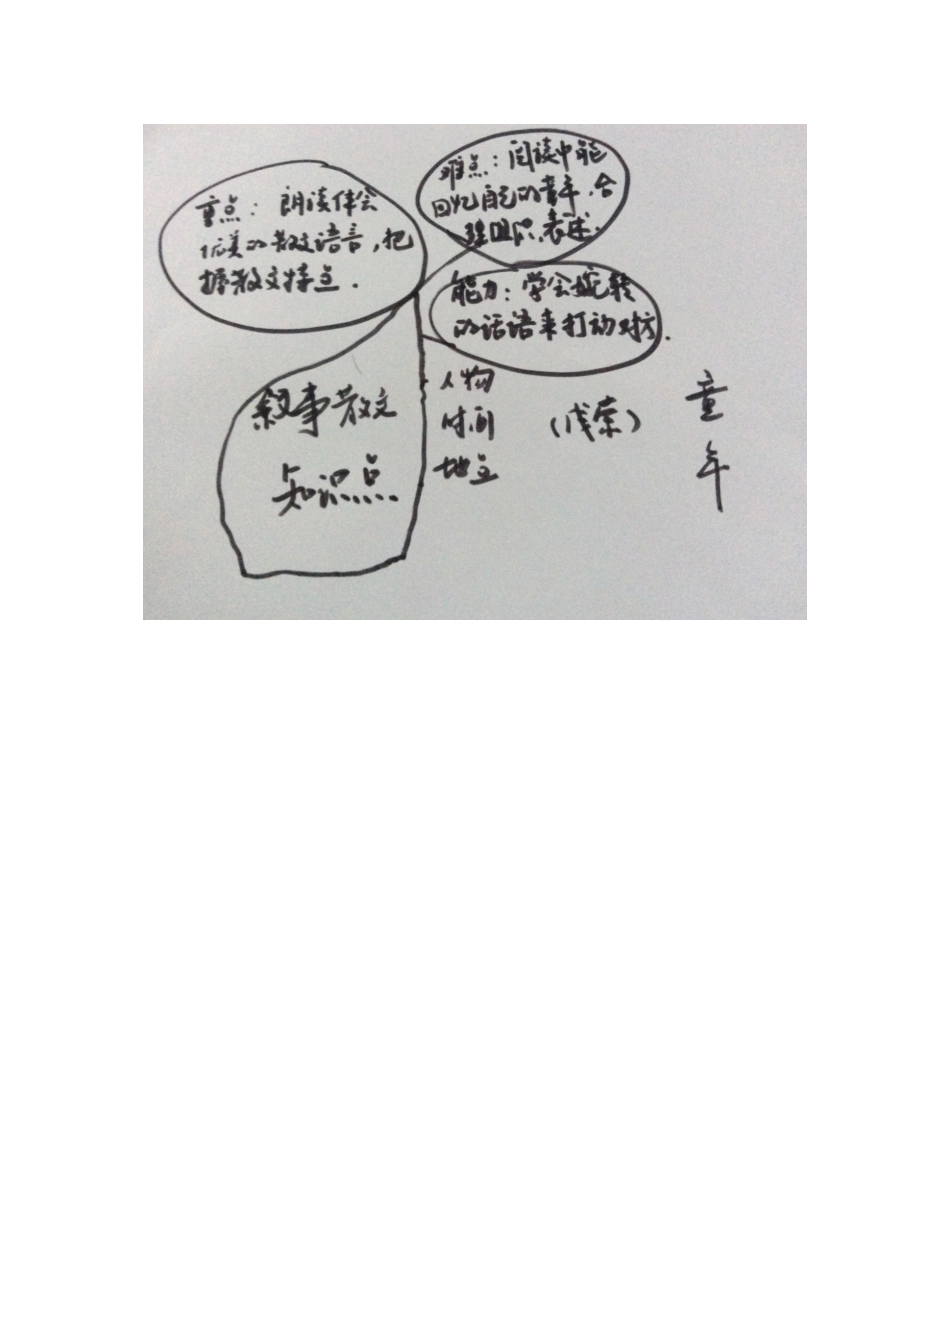 重点：朗读体会
优美的散文语言，把
握散文特点．
难点：阅读中能
回忆自己的童年，合
理组织、表述．
能力：学会婉转
的话语来打动对方．
叙事散文
知识点
人物
时间
地点
（线索）
童
年